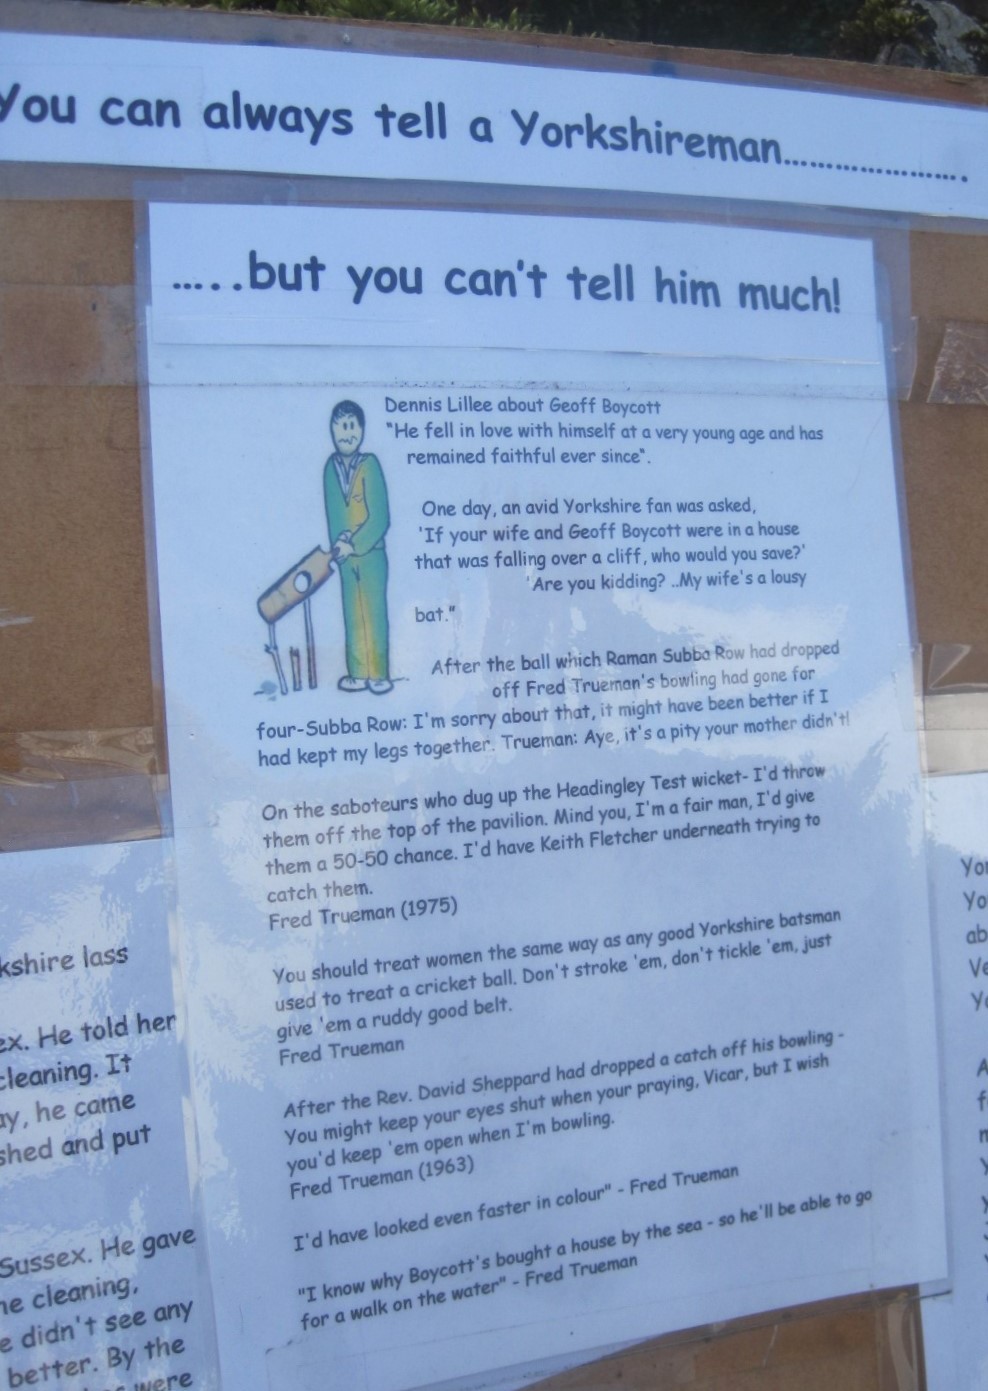 You can always tell a Yorkshireman.....................
.....but you can't tell him much!
Dennis Lillee about Geoff Boycott
"He fell in love with himself at a very young age and has
remained faithful ever since".
One day, an avid Yorkshire fan was asked,
'If your wife and Geoff Boycott were in a house
that was falling over a cliff, who would you save?'
'Are you kidding? ..My wife's a lousy
bat."
After the ball which Raman Subba Row had dropped
off Fred Trueman's bowling had gone for
four-Subba Row: I'm sorry about that, it might have been better if I
had kept my legs together. Trueman: Aye, it's a pity your mother didn't!
On the saboteurs who dug up the Headingley Test wicket- I'd throw
them off the top of the pavilion. Mind you, I'm a fair man, I'd give
them a 50-50 chance. I'd have Keith Fletcher underneath trying to
catch them.
Fred Trueman (1975)
You should treat women the same way as any good Yorkshire batsman
used to treat a cricket ball. Don't stroke 'em, don't tickle 'em, just
give 'em a ruddy good belt.
Fred Trueman
After the Rev. David Sheppard had dropped a catch off his bowling -
You might keep your eyes shut when your praying, Vicar, but I wish
you'd keep 'em open when I'm bowling.
Fred Trueman (1963)
I'd have looked even faster in colour" - Fred Trueman
"I know why Boycott's bought a house by the sea - so he'll be able to go
for a walk on the water" - Fred Trueman
kshire lass
ex. He told her
cleaning. It
ay, he came
shed and put
Sussex. He gave
he cleaning,
e didn't see any
better. By the
were